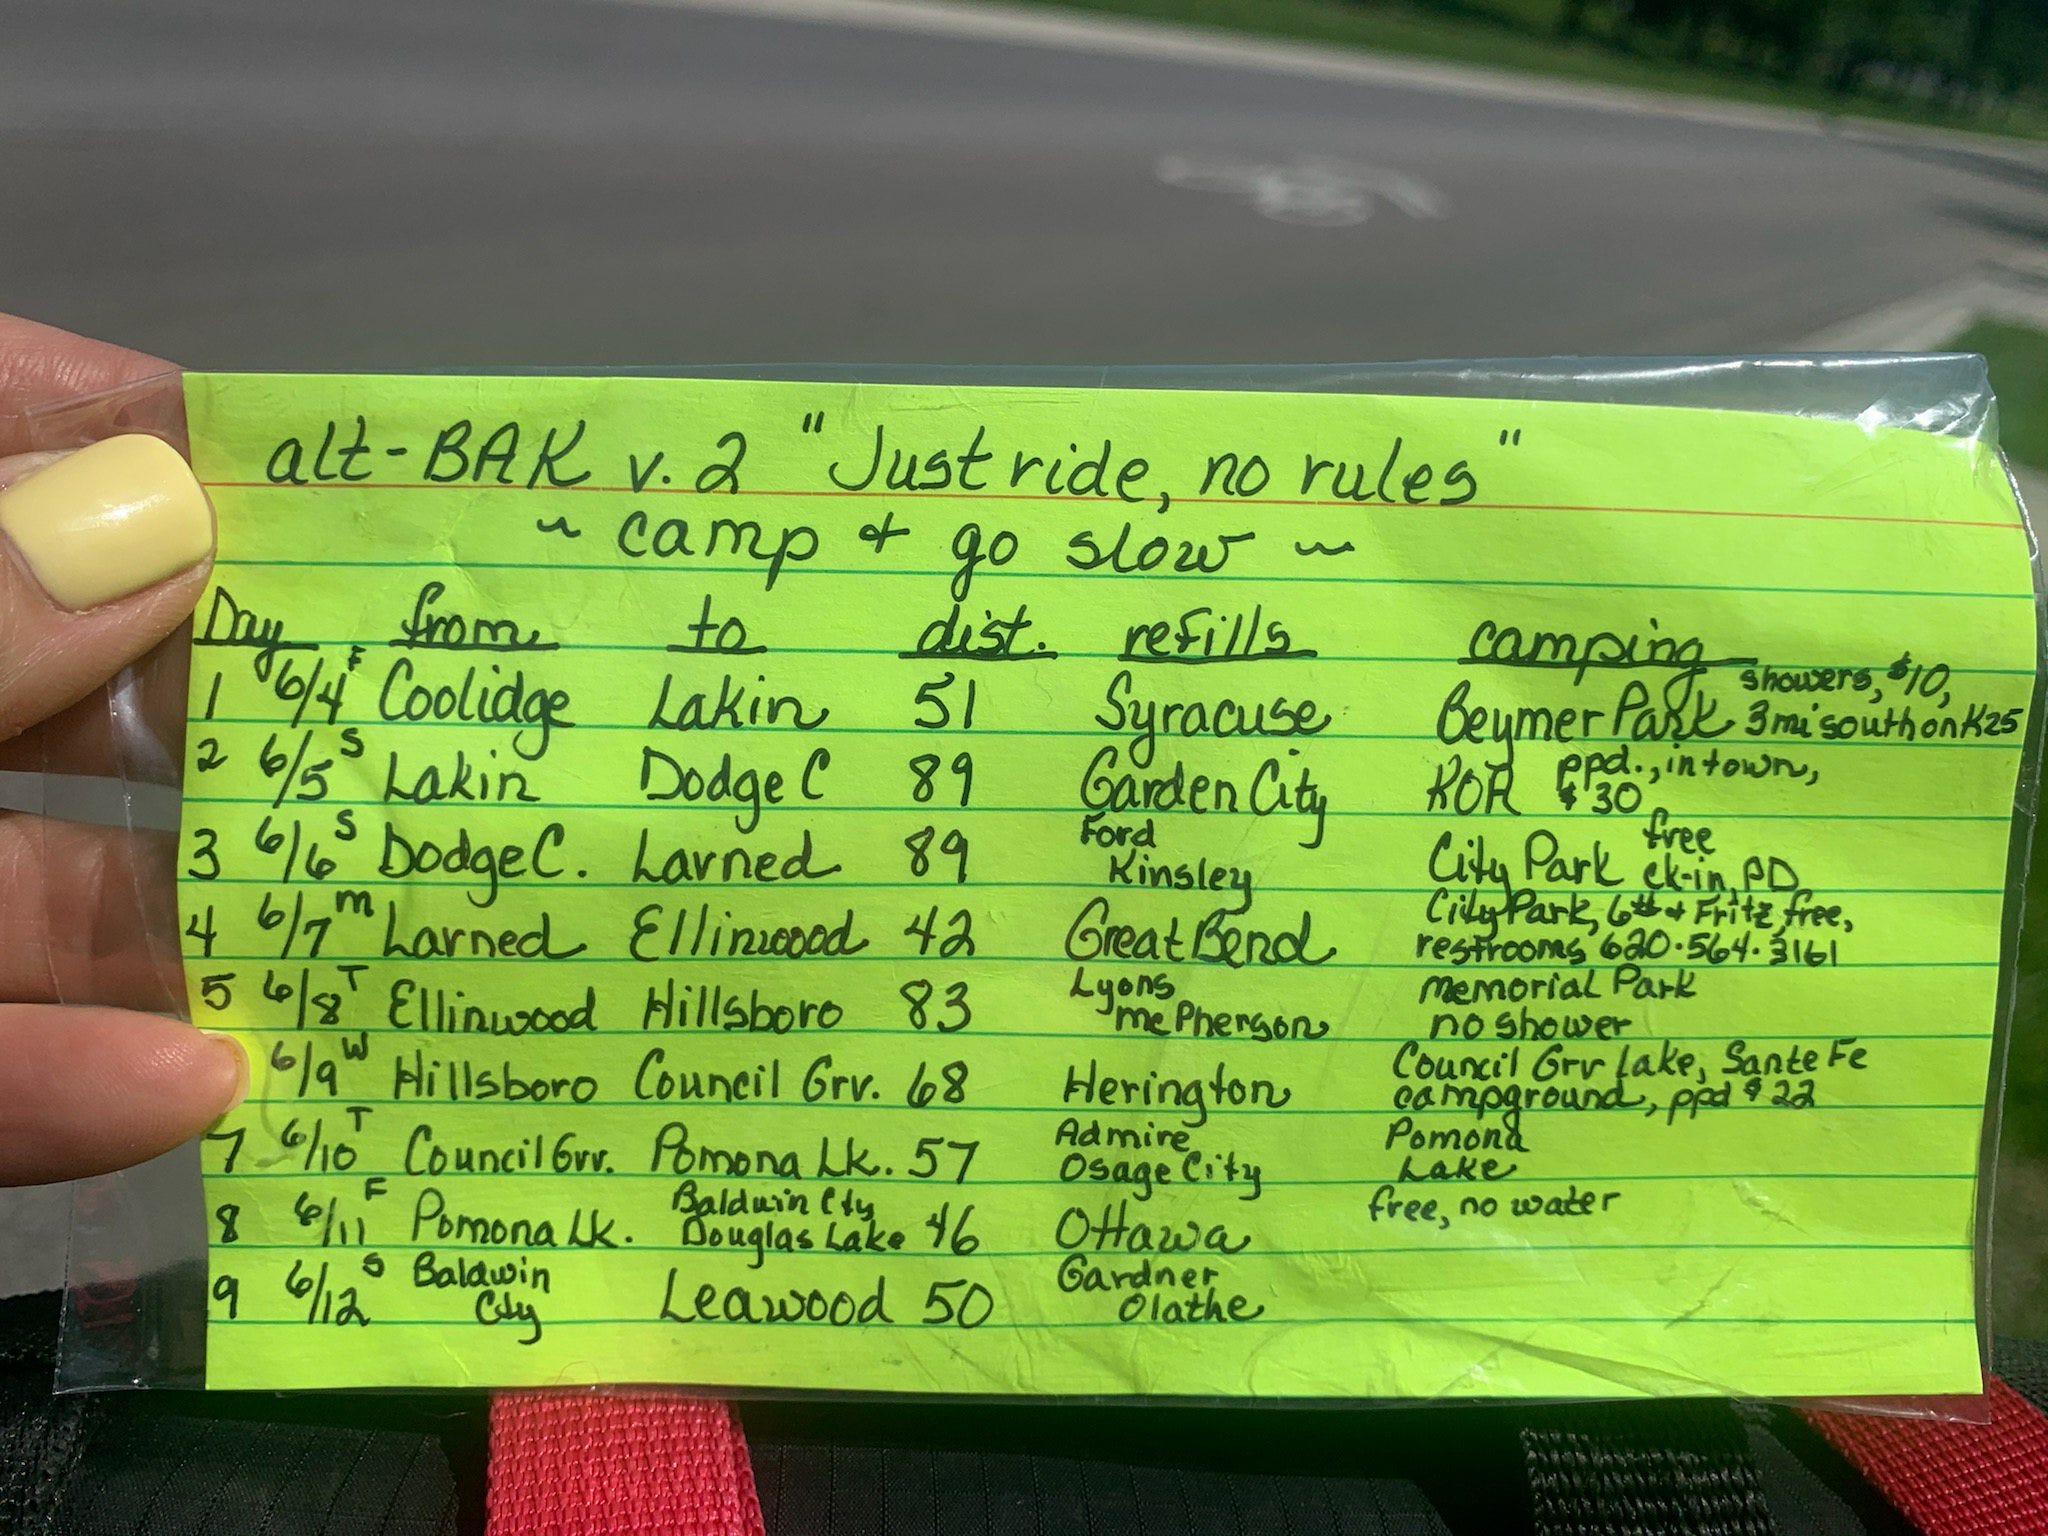 alt-BAK v.2 "Just ride, no rules"
~ camp & go slow ~
Day from to dist. refills camping
1 6/4 F Coolidge Lakin 51 Syracuse Beymer Park showers, $10, 3 mi south on K25
2 6/5 S Lakin Dodge C 89 Garden City KOA ppd., in town, $30
3 6/6 S Dodge C. Larned 89 Ford Kinsley City Park free ck-in, PD
4 6/7 M Larned Ellinwood 42 Great Bend City Park, 6th & Fritz, free, restrooms 620.564.3161
5 6/8 T Ellinwood Hillsboro 83 Lyons McPherson Memorial Park no shower
6/9 W Hillsboro Council Grv. 68 Herington Council Grv Lake, Sante Fe campground, ppd $22
7 6/10 T Council Grv. Pomona Lk. 57 Admire Osage City Pomona Lake
8 6/11 F Pomona Lk. Baldwin City Douglas Lake 46 Ottawa free, no water
9 6/12 S Baldwin City Leawood 50 Gardner Olathe